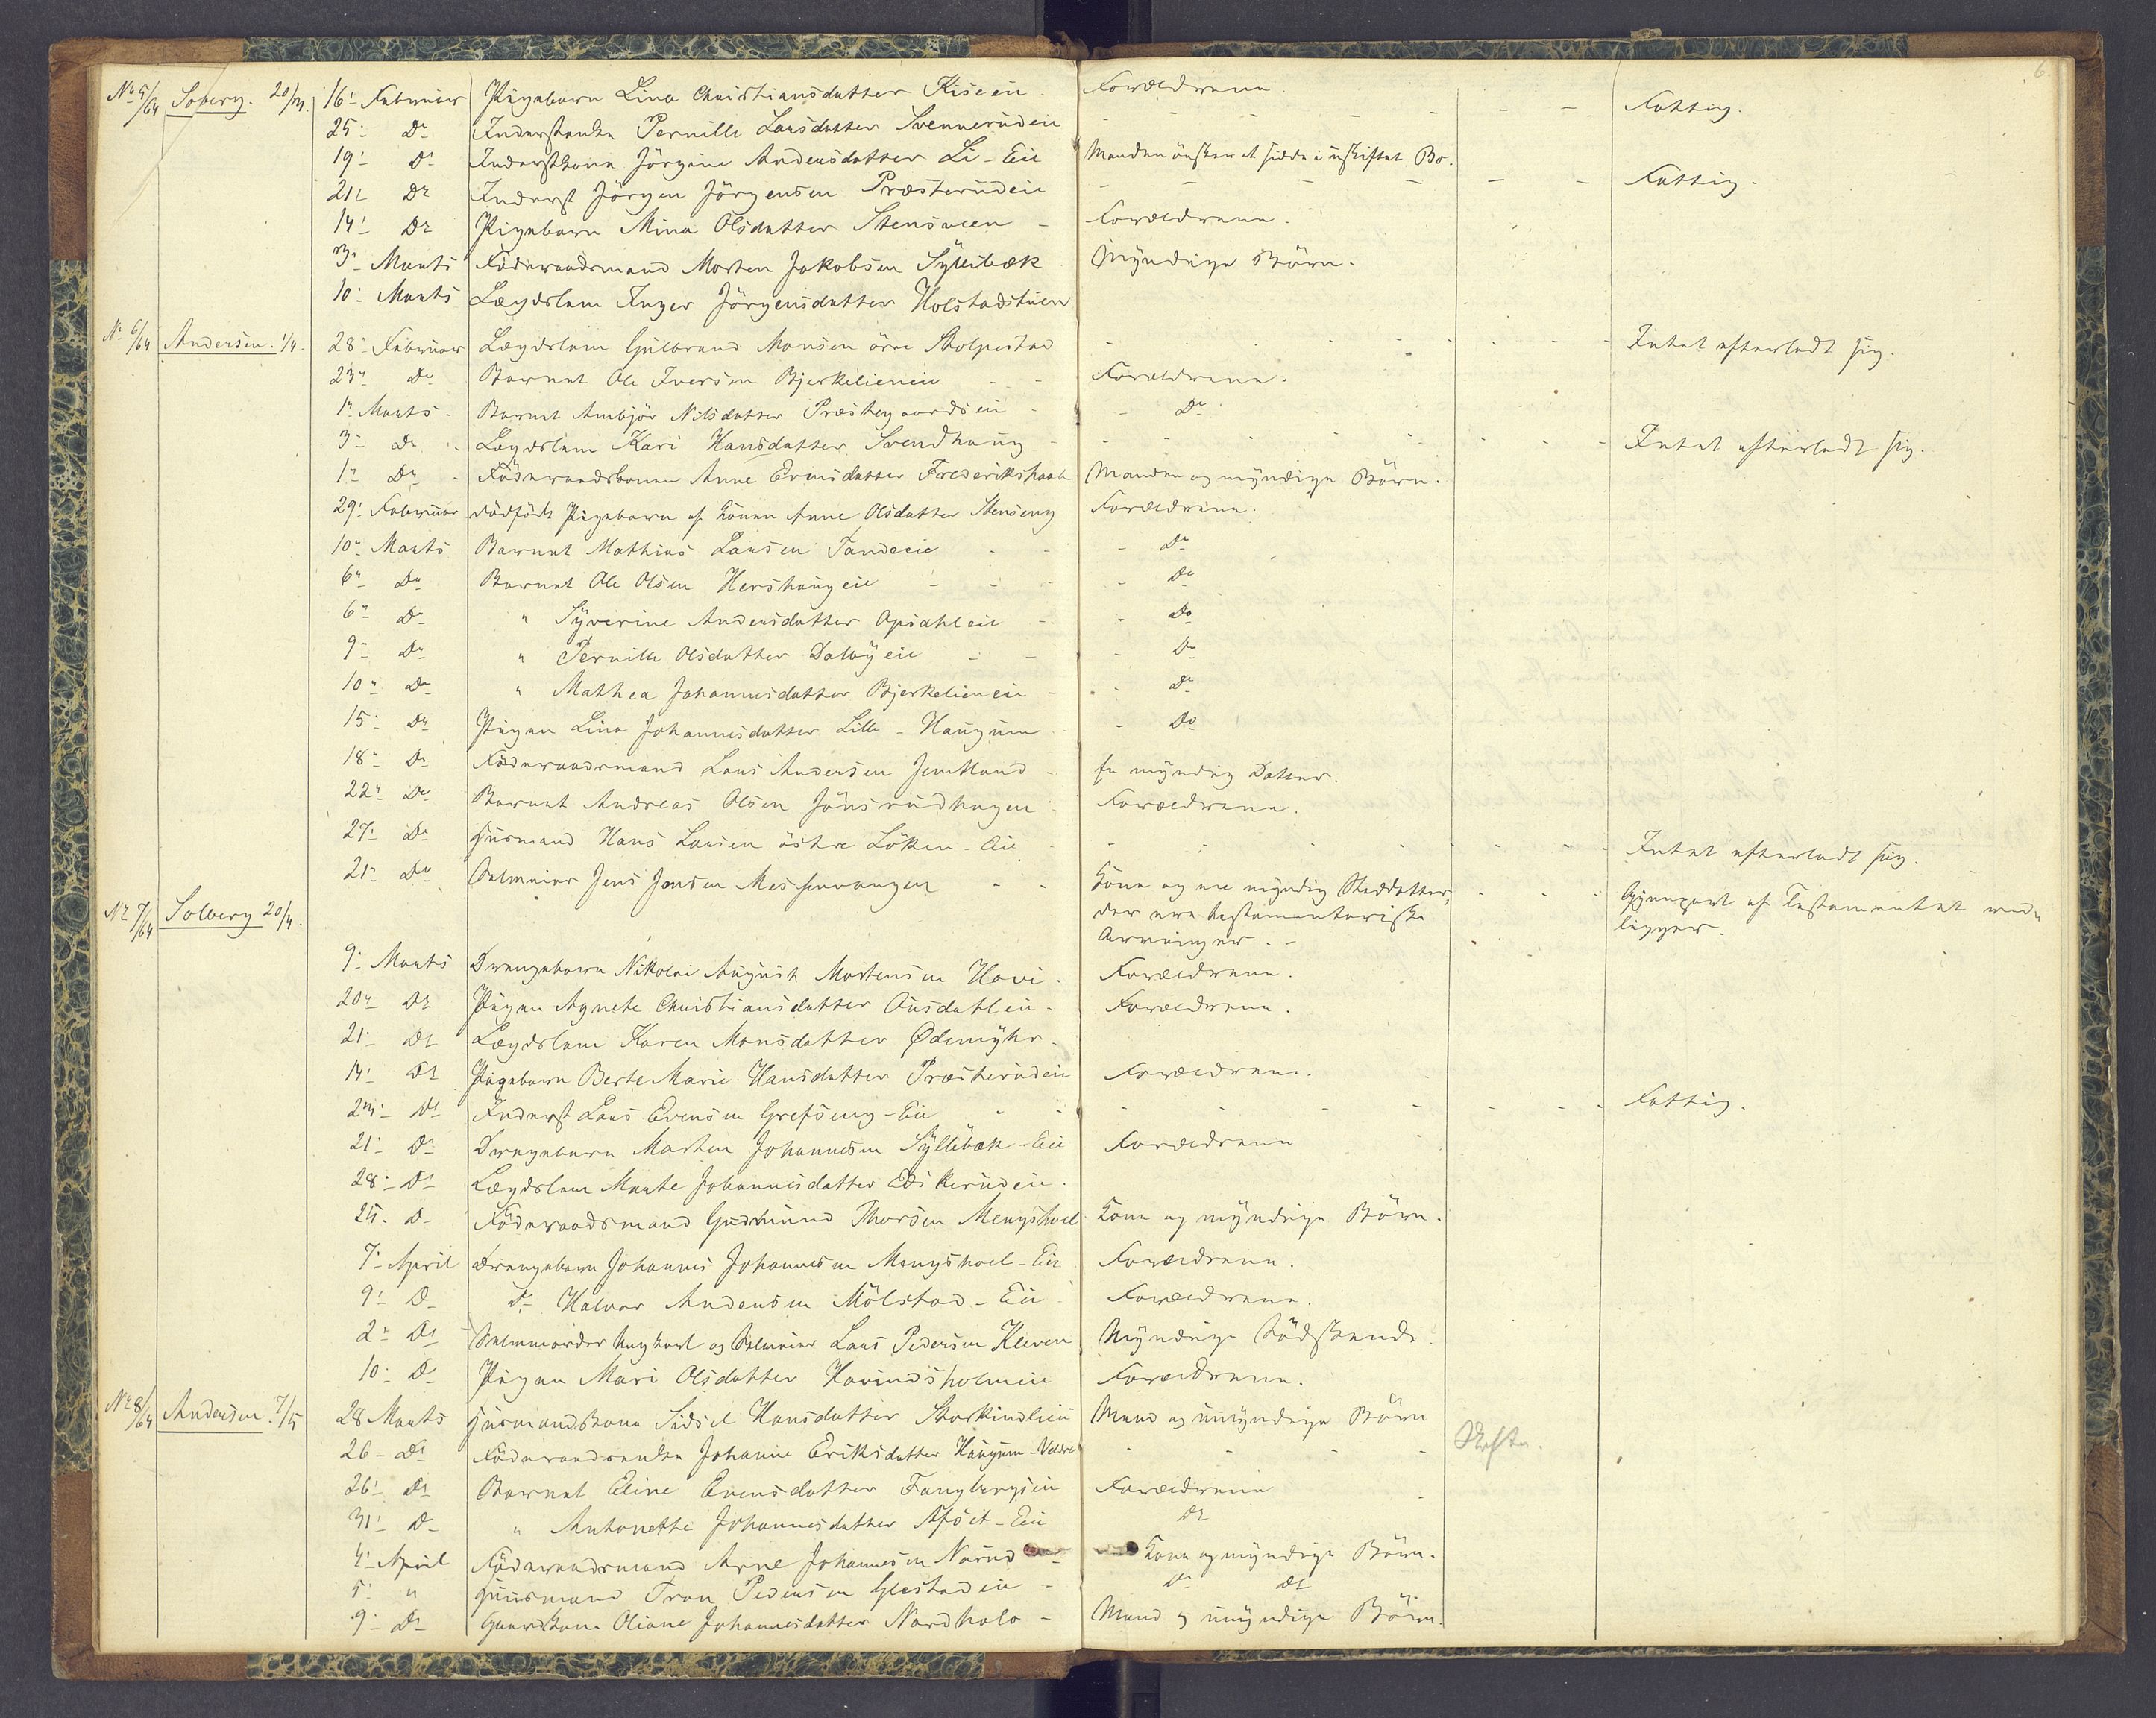 6.
No 5/64 Soberg. 20/3. 16' Februar Pigebarn Lina Christiansdatter Kiseeie. Forældrene.
25' Do Inderstenke Pernille Larsdatter Svennerudeie - - - - - - Fattig.
19' Do Inderstkone Jörgine Andersdatter Li-Eie Manden önsker at sidde i uskiftet Bo.
21' Do Inderst Jörgen Jörgensen Præsterudeie - - - - - - Fattig.
14' Do Pigebarn Mina Olsdatter Stensveen - Forældrene.
3' Marts Föderaadsmand Morten Jakobsen Syllibæk Myndige Börn.
10' Marts Lægdslem Inger Jörgensdatter Holstadstuen
No 6/64 Andersen. 1/4. 28' Februar Lægdslem Gulbrand Monsen övre Skolpestad - - - - - - Intet efterladt sig.
23' Do Barnet Ole Iversen Bjerkelieneie - - Forældrene.
1' Marts - Barnet Ambjör Nilsdatter Præstegaardseie - - Do
3' Do - Lægdslem Kari Hansdatter Svendhaug - - - - - - Intet efterladt sig.
1' Do - Föderaadskonen Anne Evensdatter Frederikshaab Manden og myndige Börn.
29' Februar dödfödt Pigebarn af Konen Anne Olsdatter Stenseng Forældrene.
10' Marts Barnet Mathias Larsen Tandeeie - - - Do
6' Do Barnet Ole Olsen Hershaugeie - - - Do
6' Do " Syverine Andersdatter Opsahleie - - Do
9' Do " Pernille Olsdatter Dalbyeie - - - Do
10' Do " Mathea Johannesdatter Bjerkelieneie - - Do
15' Do Pigen Lina Johannesdatter Lille-Haugum - Do
18' Do Föderaadsmand Lars Andersen Jemtland - En myndig Datter.
22' Do Barnet Andreas Olsen Jönsrudhagen Forældrene.
27' Do Husmand Hans Larsen östre Löken-Eie - - - - - - Intet efterladt sig.
21' Do Selveier Jens Jensen Messenvangen - - Kone og en myndig Steddatter, - - - Gjenpart af Testamentet ved-
No 7/64 Solberg 20/4. der ere testamentariske ligger.
Arvinger. -
9' Marts Drengebarn Nikolai August Mortensen Hovi. Forældrene.
20' Do Pigen Agnete Christiansdatter Ousdahleie. Forældrene.
21' Do Lægdslem Karen Monsdatter Ødemyhr.
14' Do Pigebarn Berte Marie Hansdatter Præsterudeie Forældrene.
23' Do Inderst Lars Evensen Grefseng-Eie - - - - - - Fattig.
21' Do Drengebarn Morten Johannesen Syllibæk-Eie Forældrene
28' Do Lægdslem Marte Johannesdatter Ediskerudeie.
25' Do Föderaadsmand Gudmund Thorsen Mengshoel Kone og myndige Börn.
7' April Drengebarn Johannes Johannesen Mengshoel-Eie Forældrene.
9' Do Do Halvor Andersen Mölstad-Eie Forældrene.
2' Do og Selveier Lars Pedersen Kleven Myndige Södskende.
10' Do Pigen Mari Olsdatter Hovindsholmeie Forældrene.
No 8/64 Andersen. 7/5 28 Marts Husmandskone Sidsel Hansdatter Storkindlieie Mand og umyndige Börn
26' Do Föderaadsenke Johanne Eriksdatter Haugum-Veldre - - - - Skifte.
26' Do Barnet Eline Evensdatter Fangbergeie Forældrene
31' Do " Antonette Johannesdatter Afset-Eie Do
4' April Föderaadsmand Arne Johannesen Narud - Kone og myndige Börn.
5' " Husmand Tron Pedersen Glestadeie - Do Do
9' Do Gaardkone Oliane Johannesdatter Nordholo - Mand og umyndige Börn.